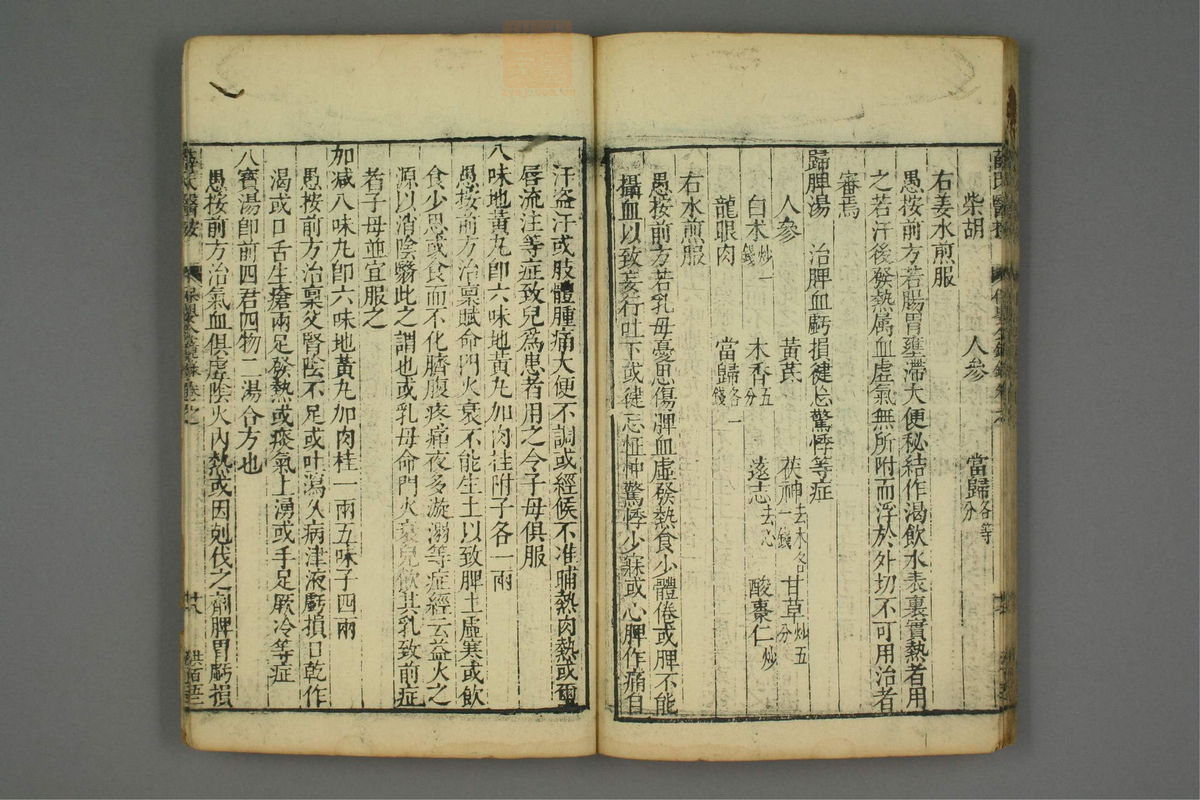 柴胡 人參 當歸各等分
右姜水煎服
愚按前方若腸胃壅滯大便秘結作渴飲水表裏實熱者用
之若汗後發熱属血虛氣無所附而浮於外切不可用治者
審焉
歸脾湯 治脾血虧損健忘驚悸等症
人參 黃芪 茯神去木各一錢 甘草炒五分
白朮炒一錢 木香五分 遠志去心 酸棗仁炒
龍眼肉 當歸各一錢
右水煎服
愚按前方若乳母憂思傷脾血虛發熱食少體倦或脾不能
攝血以致妄行吐下或健忘怔忡驚悸少寐或心脾作痛自
汗盗汗或肢體腫痛大便不調或經候不准晡熱內熱或
唇流注等症致兒為患者用之令子母俱服
八味地黃丸卽六味地黃丸加肉桂附子各一兩
愚按前方治禀賦命門火衰不能生土以致脾土虛寒或飲
食少思或食而不化臍腹疼痛夜多漩溺等症經云益火之
源以消陰翳此之謂也或乳母命門火衰兒飲其乳致前症
者子母並宜服之
加减八味丸卽六味地黃丸加肉桂一兩五味子四兩
愚按前方治禀父腎陰不足或吐瀉久病津液虧損口乾作
渴或口舌生瘡兩足發熱或痰氣上湧或手足厥冷等症
八寶湯卽前四君四物二湯合方也
愚按前方治氣血俱虛陰火內熱或因剋伐之劑脾胃虧損
薛氏醫按